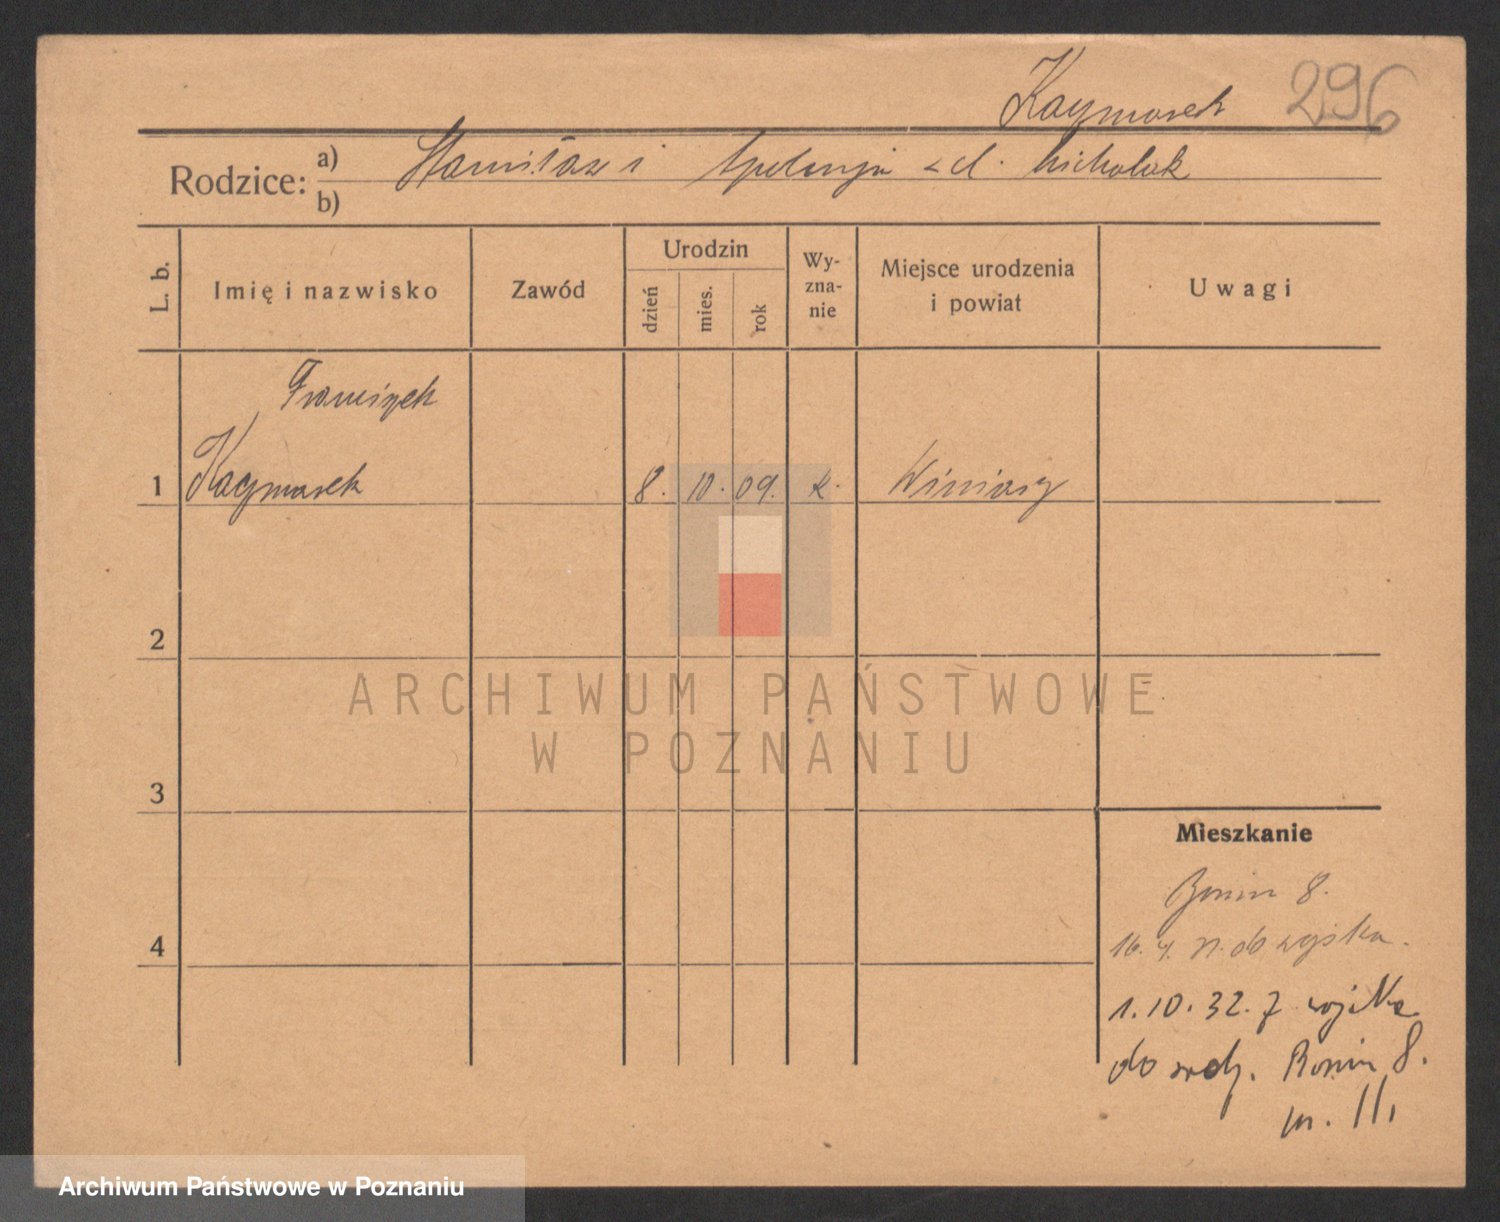 Kaczmarek 296
Rodzice: a) Stanisław i Apolonja z d. Michalak
b)
L. b.
Imię i nazwisko
Zawód
Urodzin
dzień
mies.
rok
Wy-
zna-
nie
Miejsce urodzenia
i powiat
Uwagi
Franciszek
1 Kaczmarek 8. 10. 09. k. Winiary
2
3
4
Mieszkanie
Bonin 8.
16. 4. do wojska.
1.10.32. z wojska
do rodz. Bonin 8.
m. 11,
ARCHIWUM PAŃSTWOWE
W POZNANIU
Archiwum Państwowe w Poznaniu